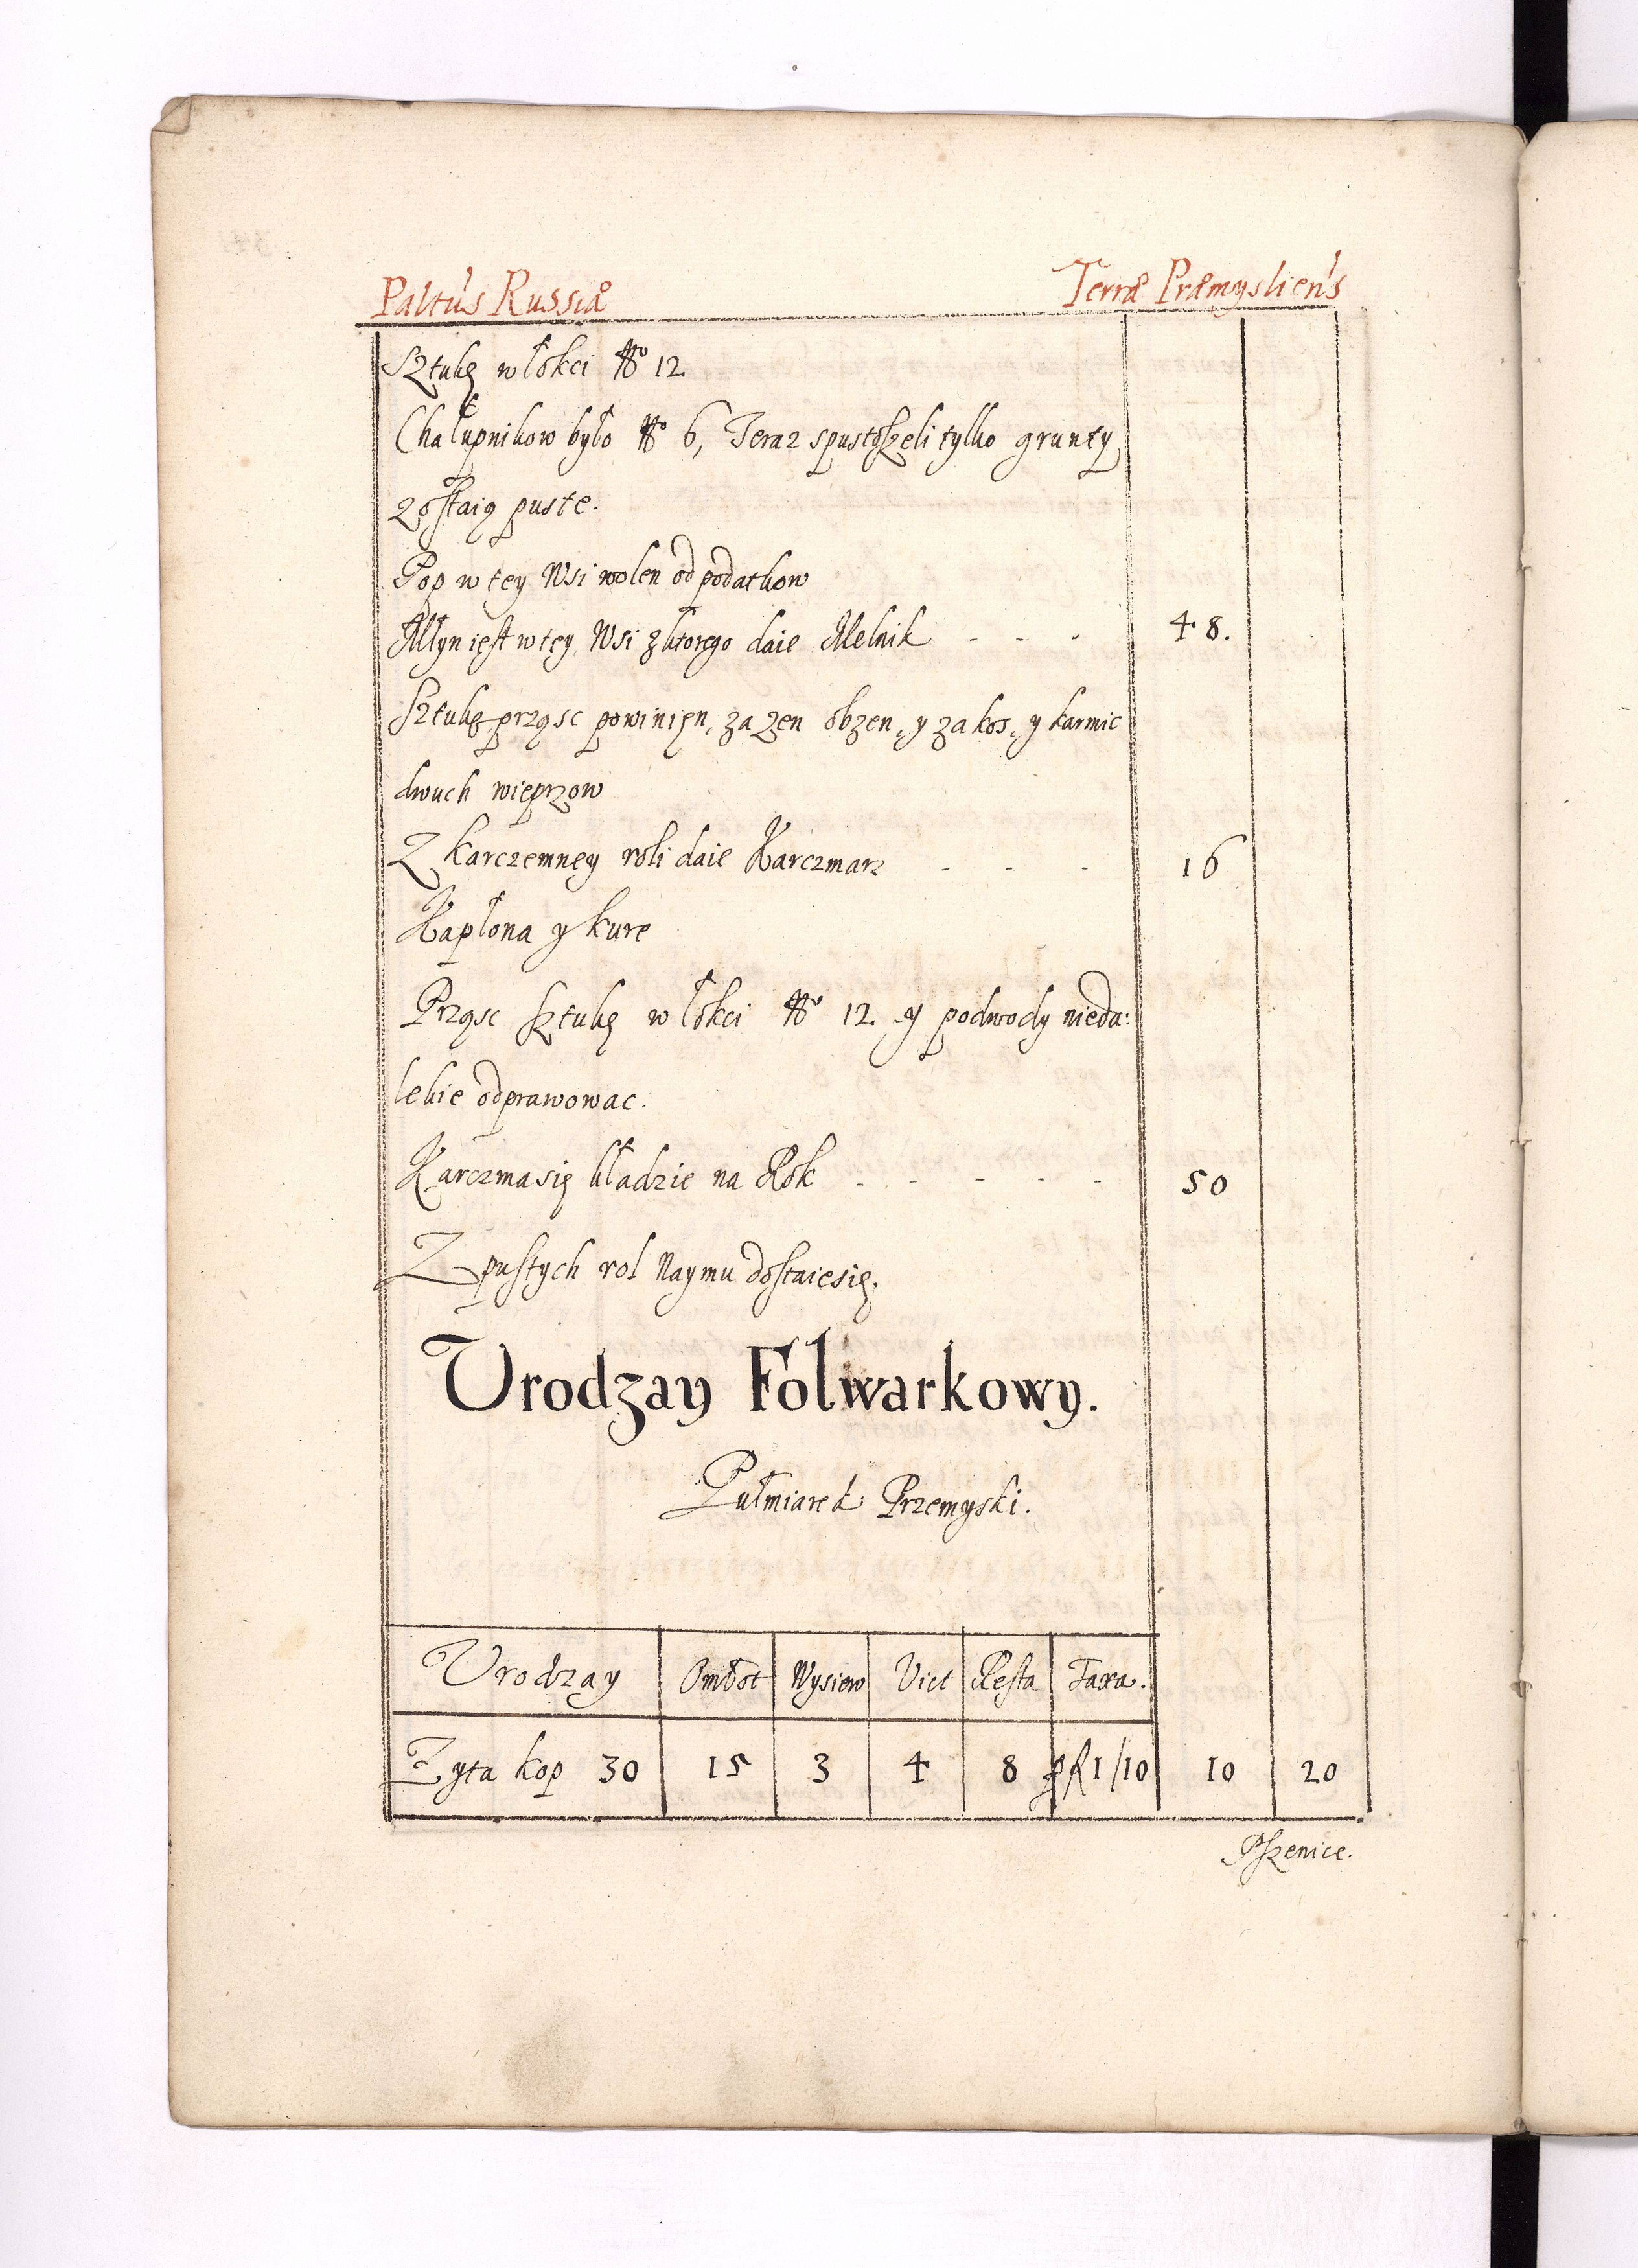 Paltus Russiæ Terræ Præmysliens
Sztukę w łokci No 12
Chałupnikow było No 6, Teraz spustoszeli tylko grunty
zostaią puste.
Pop w tey Wsi wolen od podatkow
Młyn iest w tey Wsi z ktorego daie Melnik - - - 48.
Sztukę prząsc powinien, za zen obzen, y za kos, y karmic
dwuch wieprzow
Z karczemney roli daie Karczmarz - - - 16
Kapłona y kure
Prząsc sztukę w łokci No 12 y podwody nieda:
lekie odprawowac.
Karczma się kładzie na Rok - - - - - 50
Z pustych rol Naymu dostaie się.
Urodzay Folwarkowy.
Pułmiarek Przemyski.
Urodzay Omłot Wysiew Vict Resta Taxa.
Zyta kop 30 15 3 4 8 pfl 1/10 10 20
Pszenice.